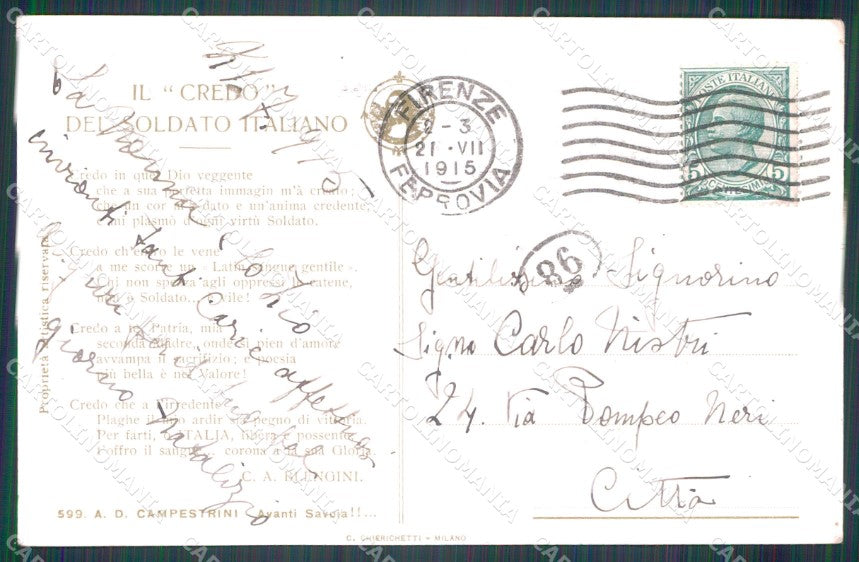 IL "CREDO"
DEL SOLDATO ITALIANO
Credo in quel Dio veggente
che a sua perfetta immagin m'à creato;
che un cor m'à dato e un'anima credente,
mi plasmò d'ogni virtù Soldato.
Credo ch'entro le vene
a me scorre un «Latin sangue gentile».
Chi non spezza agli oppressi le catene,
non è Soldato... è vile!
Credo a la Patria, mia
seconda Madre, onde si pien d'amore
avvampa il sacrifizio; e poesia
più bella è nel Valore!
Credo che a l'Irredente
Plaghe il mio ardir sia pegno di vittoria.
Per farti, o ITALIA, libera e possente,
t'offro il sangue corona a la sua Gloria.
C. A. BLENGINI.
599. A. D. CAMPESTRINI Avanti Savoia!!...
Proprietà artistica riservata
C. CHIERICHETTI - MILANO
1915
La Nonna e lo Zio
inviano tanti cari e affettuosi
giorno Natalizio
FIRENZE
2-3
21·VII
1915
FERROVIA
POSTE ITALIANE
5 CENTESIMI 5
86
Gentilissimo Signorino
Sigño Carlo Nistri
24. Via Pompeo Neri
Città
CARTOLINOMANIA